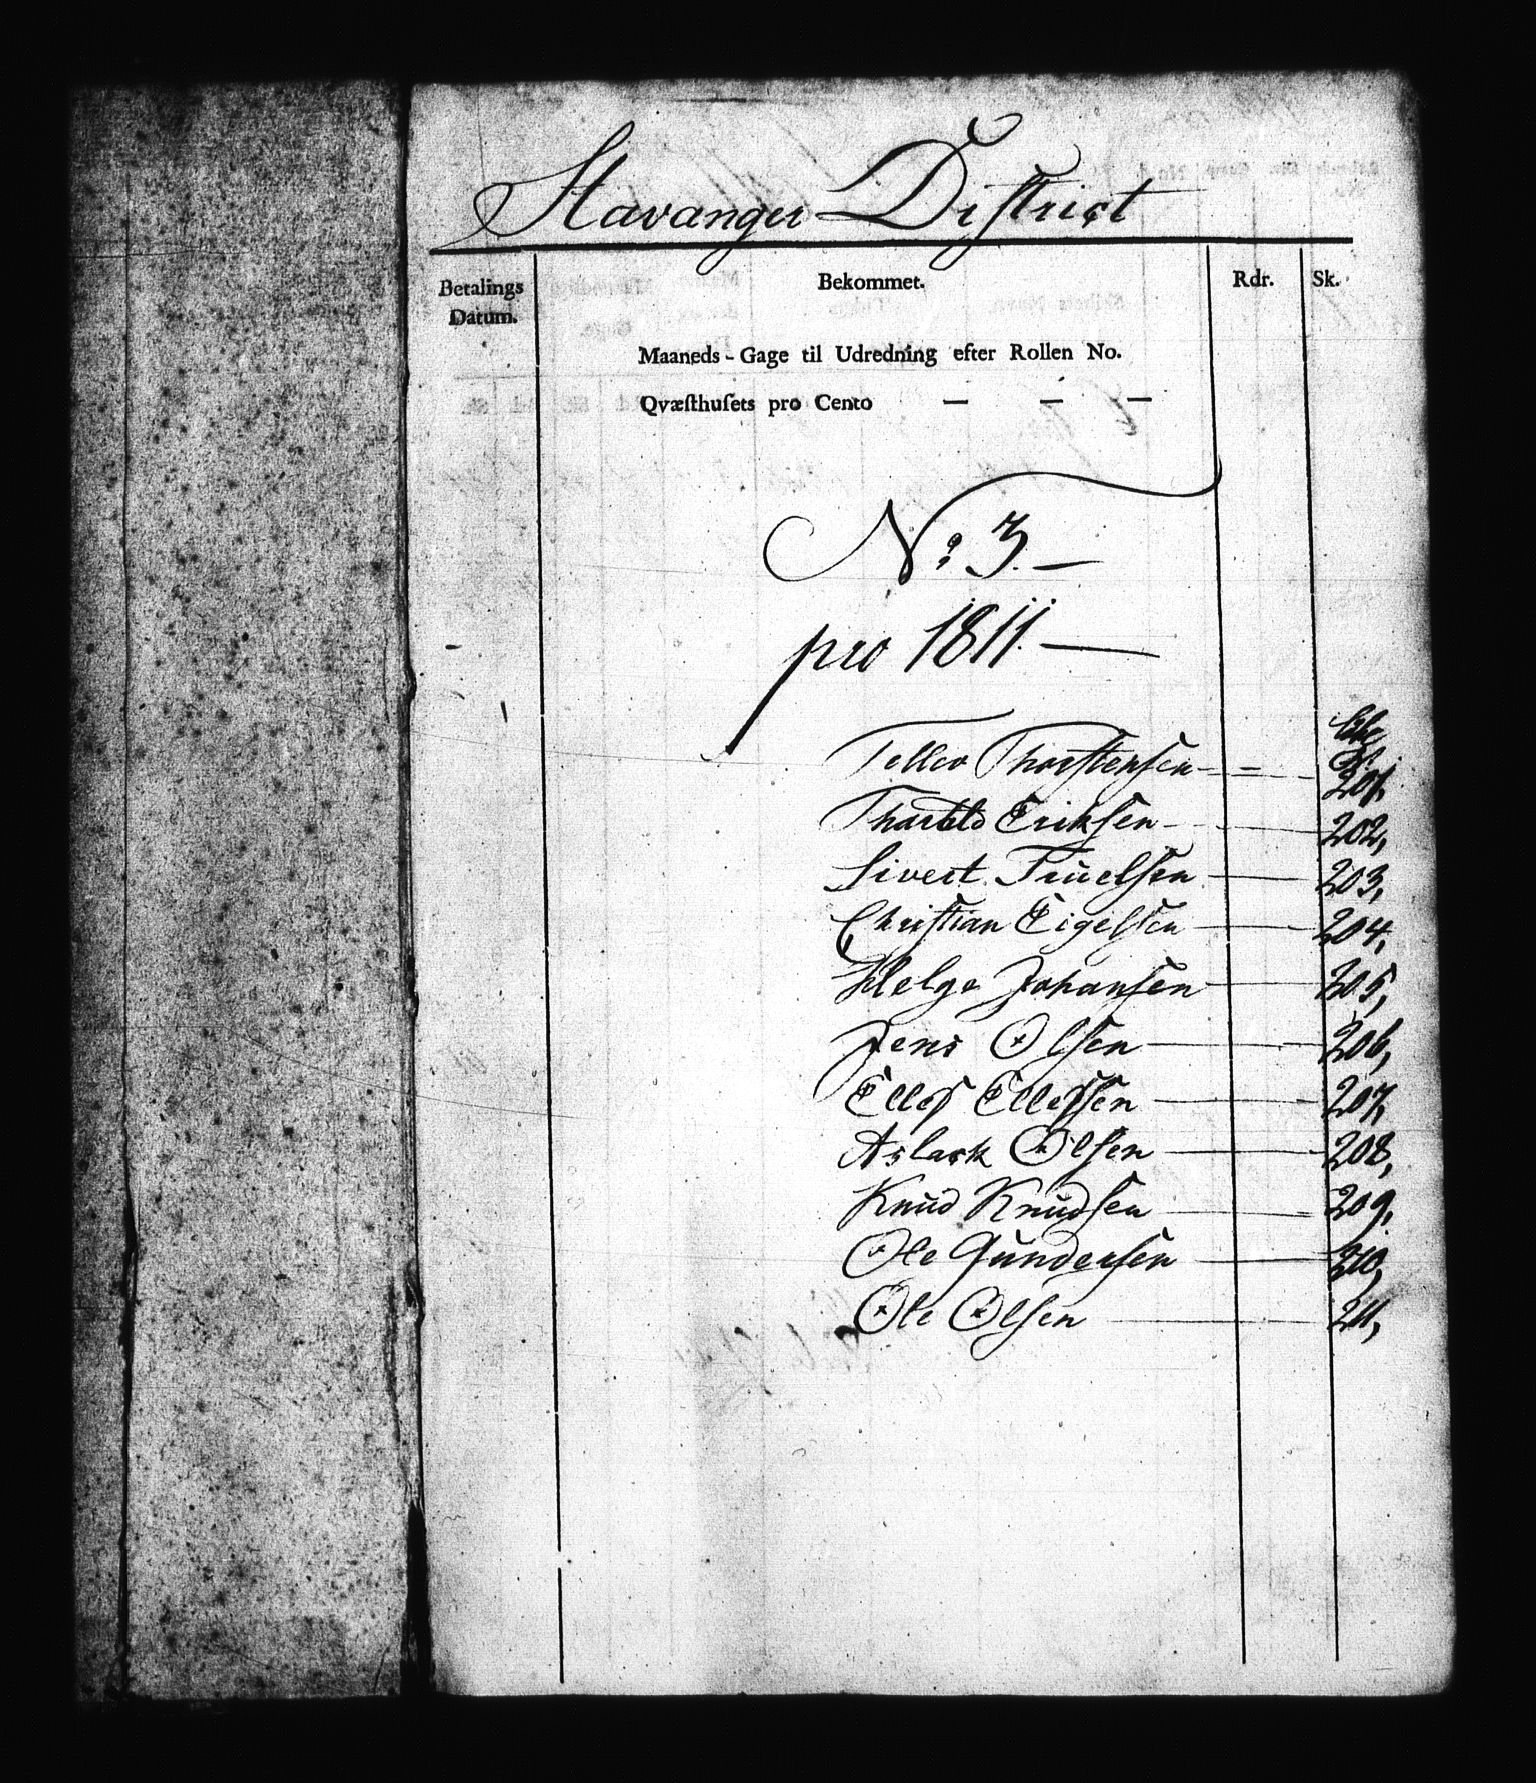 Stavanger District
Betalings Datum. Bekommet. Rdr. Sk.
Maaneds-Gage til Udredning efter Rollen No.
Qvæſthuſets pro Cento — — —
No: 3. —
pro 1811. —
Tellev Thorstensen — 201,
Eriksen — 202,
Sivert Truelsen — 203,
Christian Eigelsen — 204,
Helge Johansen — 205,
Jens Olsen — 206,
Ellef Ellefsen — 207,
Aslack Olsen — 208,
Knud Knudsen — 209,
Ole Gundersen — 210,
Ole Olsen — 211,